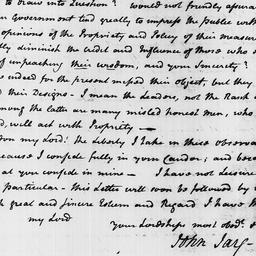 to draw into Question? would not friendly assuran
n Government tend greatly to impress the public with
opinions of the Propriety and Policy of their measur
ally diminish the credit and Influence of those who
of impeaching their wisdom, and your Sincerity?
indeed for the present missed their object, but they
their Designs - I mean the Leaders, not the Rank
among the latter are many misled honest Men, who
will act with Propriety —
my Lord! the Liberty I take in these observa
because I confide fully in your Candor; and beca
at you confide in mine — I have not Leisure
particular - this Letter will soon be followed by
great and sincere Esteem and Regard I have
my Lord
your Lordships most obedt.
John Jay -